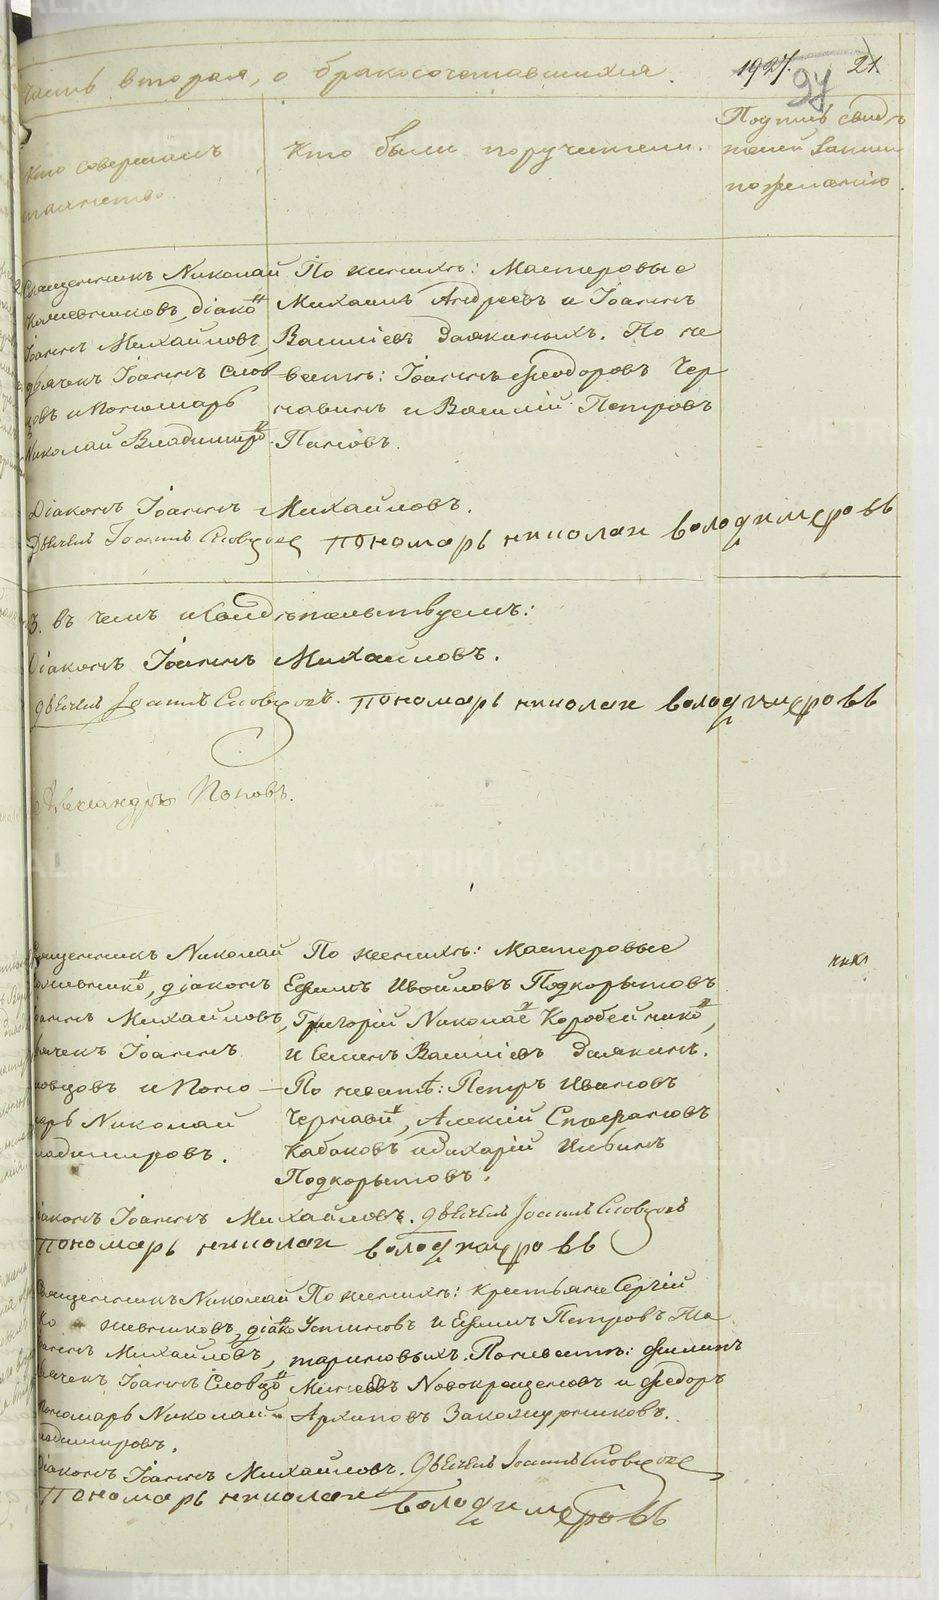 Часть вторая, о бракосочетавшихся.
1927. 27 21
Кто совершалъ
таинство.
Кто были поручители.
Подпись свидѣ
телей записи
по желанію.
Священникъ Николай
Кожевниковъ, діако
Іоаннъ Михайловъ,
дьячекъ Іоаннъ Слов
цовъ и Пономарь
Николай Владимиро
По женихѣ: Мастеровые
Михаилъ Андреевъ и Іоаннъ
Василіевъ Далякиныхъ. По не
вѣстѣ: Іоаннъ Ѳеодоровъ Чер
навинъ и Василій Петровъ
Паповъ.
Діаконъ Іоаннъ Михайловъ.
Дьячекъ Іоаннъ Словцовъ пономарь николаи володимеровъ
3. въ чемъ и свидѣтельствуемъ:
Діаконъ Іоаннъ Михайловъ.
дьячекъ Іоаннъ Словцовъ. пономарь николаи володимеровъ
Александръ Поповъ.
Священникъ Николай
Кожевнико, діаконъ
Іоаннъ Михайловъ,
дьячекъ Іоаннъ
Словцовъ и Поно
марь Николай
Владимировъ.
По женихѣ: Мастеровые
Ефимъ Ивойловъ Подкорытовъ
Григорій Николае Коробейнико,
и Семенъ Василіевъ Далякинъ.
По невѣстѣ: Петръ Ивановъ
Чернави, Алексій Стефановъ
Кабаковъ и Захарій Ильинъ
Подкорытовъ.
Діаконъ Іоаннъ Михайловъ. дьячекъ Іоаннъ Словцовъ
пономарь николаи володимеровъ
Священникъ Николай
Кожевниковъ, діако
Іоаннъ Михайловъ,
дьячекъ Іоаннъ Словцо
Пономарь Николай
Владимировъ.
По женихѣ: крестьяне Сергій
Устиновъ и Ефимъ Петровъ Та
тариновыхъ. По невѣстѣ: Филипъ
Новокрещеновъ и Ѳедоръ
Архиповъ Закожурниковъ.
Діаконъ Іоаннъ Михайловъ. Дьячекъ Іоаннъ Словцовъ
пономарь николаи володимеровъ
METRIKI.GASO-URAL.RU